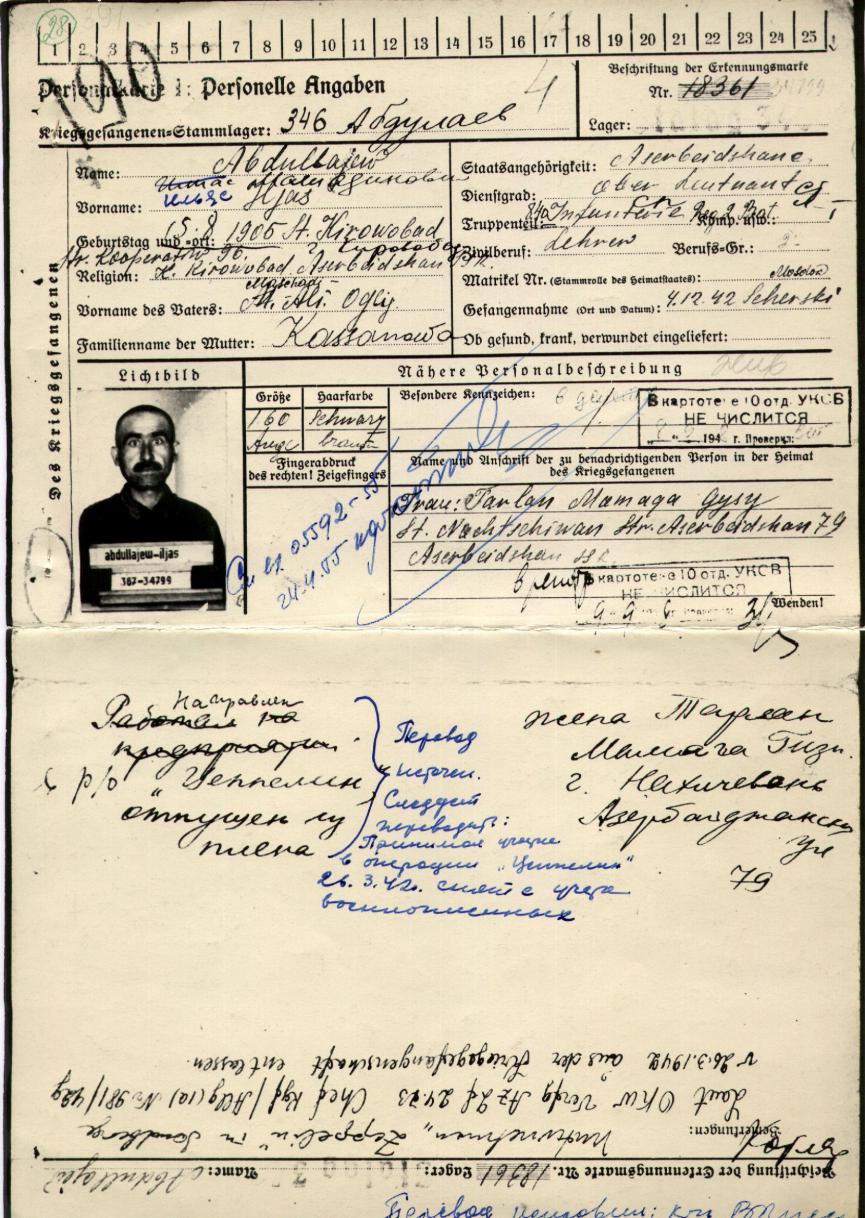 28
1 2 3 4 5 6 7 8 9 10 11 12 13 14 15 16 17 18 19 20 21 22 23 24 25
190
Personalkarte I: Personelle Angaben
4
Beschriftung der Erkennungsmarke
Nr. 18361 34799
Kriegsgefangenen-Stammlager: 346 Абдулаев
Lager:
Des Kriegsgefangenen
Name: Abdullajew
Vorname: Ильяс Iljas
Geburtstag und -ort: 15.8.1905 St. Kirowobad
Str. Kooperatiw 96.
Religion: K. Kirowobad Aserbeidshan
Vorname des Vaters: M. Ali Ogly
Familienname der Mutter: Kassanowa
Staatsangehörigkeit: Aserbeidshane
Dienstgrad: Ober Leutnant
Truppenteil: 840 Infanterie Reg. 2 Bat. Komp. usw.:
Zivilberuf: Lehrer Berufs-Gr.:
Matrikel Nr. (Stammrolle des Heimatstaates):
Gefangennahme (Ort und Datum): 4.12.42
Ob gesund, krank, verwundet eingeliefert:
Lichtbild
abdullajew-iljas
367-34799
Nähere Personalbeschreibung
Größe Haarfarbe Besondere Kennzeichen:
160 Schwarz
Fingerabdruck
des rechten! Zeigefingers
В картотеке 10 отд. УКСВ
НЕ ЧИСЛИТСЯ
194 г. Проверил:
Name und Anschrift der zu benachrichtigenden Person in der Heimat
des Kriegsgefangenen
Frau: Tarlan Mamaga Gysy
St. Nachtschiwan Str. Aserbeidshan 79
Aserbeidshan SSR
05592-55
24.4.55
В картотеке 10 отд. УКСВ
НЕ ЧИСЛИТСЯ
Wenden!
Направлен
Работал на
предприятии
р/о "Цеппелин"
отпущен из
плена
Перевод
неточен.
Следует
переводить:
Принимал участие
в операции "Цеппелин"
26.3.42г. снят с учета
военнопленных
жена Тарлан
Мамага Гизи.
г. Нахичевань
Азербайджанск
ул
79
Beschriftung der Erkennungsmarke Nr. 18361 Lager: Name: Abdullajew
Bemerkungen: Unternehmen "Zeppelin" in
Laut OKW Verfg Az 2f 24.73 Chef Kgf/Allg (Ia) No 981/42g
v 26.3.1942 aus der Kriegsgefangenschaft entlassen.